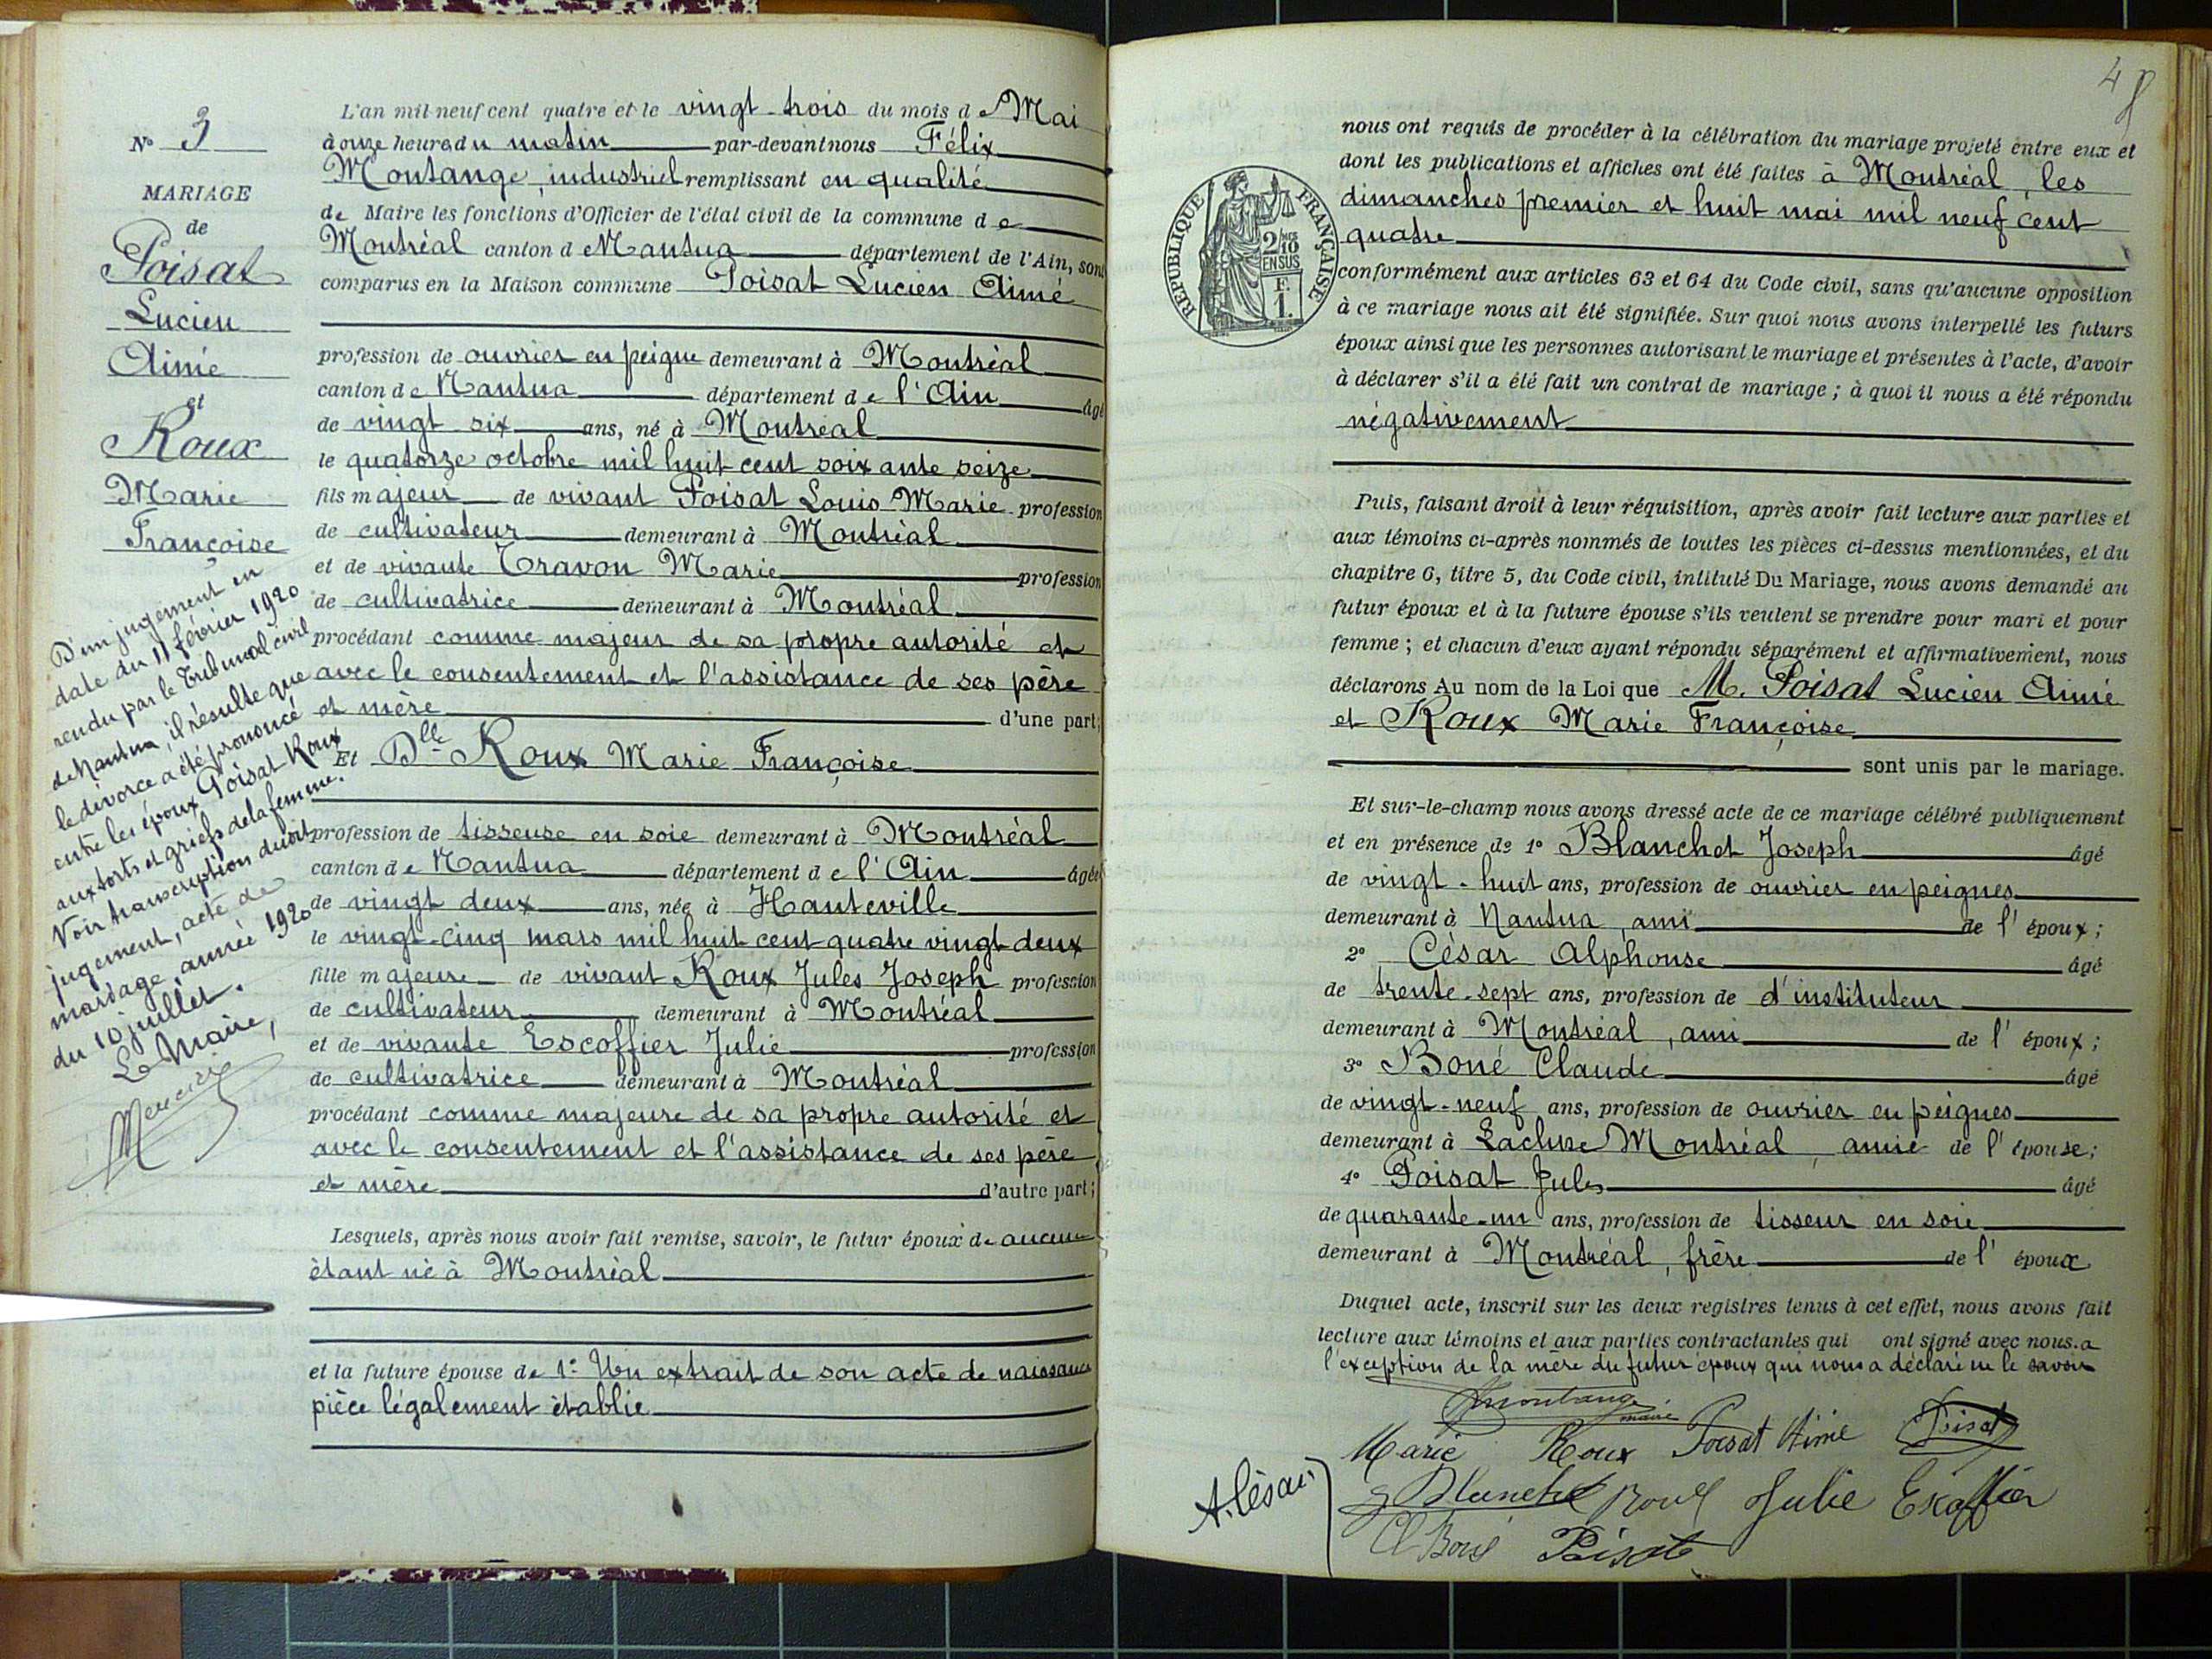 N° 3
MARIAGE
de
Poisat
Lucien
Aimé
et
Roux
Marie
Françoise
D'un jugement en
date du 11 février 1920
rendu par le Tribunal civil
de Nantua, il résulte que
le divorce a été prononcé
entre les époux Poisat Roux
aux torts et griefs de la femme.
Voir transcription dudit
jugement, acte de
mariage, année 1920
du 10 juillet.
Le Maire,
Mercier
L'an mil-neuf cent quatre et le vingt-trois du mois de Mai
à onze heures du matin par-devant nous Félix
Montange, industriel remplissant en qualité
de Maire les fonctions d'Officier de l'état civil de la commune de
Montréal canton de Nantua département de l'Ain, sont
comparus en la Maison commune Poisat Lucien Aimé
profession de ouvrier en peigne demeurant à Montréal
canton de Nantua département de l'Ain âgé
de vingt six ans, né à Montréal
le quatorze octobre mil huit cent soixante seize
fils majeur de vivant Poisat Louis Marie profession
de cultivateur demeurant à Montréal
et de vivante Travon Marie profession
de cultivatrice demeurant à Montréal
procédant comme majeur de sa propre autorité et
avec le consentement et l'assistance de ses père
et mère d'une part;
Et Dlle Roux Marie Françoise
profession de tisseuse en soie demeurant à Montréal
canton de Nantua département de l'Ain âgée
de vingt deux ans, née à Hauteville
le vingt-cinq mars mil huit cent quatre vingt deux
fille majeure de vivant Roux Jules Joseph profession
de cultivateur demeurant à Montréal
et de vivante Escoffier Julie profession
de cultivatrice demeurant à Montréal
procédant comme majeure de sa propre autorité et
avec le consentement et l'assistance de ses père
et mère d'autre part;
Lesquels, après nous avoir fait remise, savoir, le futur époux de aucune
étant né à Montréal
et la future épouse de 1° Un extrait de son acte de naissance
pièce légalement établie
48
RÉPUBLIQUE FRANÇAISE
2/10 EN SUS
F. 1.
nous ont requis de procéder à la célébration du mariage projeté entre eux et
dont les publications et affiches ont été faites à Montréal, les
dimanches premier et huit mai mil neuf cent
quatre
conformément aux articles 63 et 64 du Code civil, sans qu'aucune opposition
à ce mariage nous ait été signifiée. Sur quoi nous avons interpellé les futurs
époux ainsi que les personnes autorisant le mariage et présentes à l'acte, d'avoir
à déclarer s'il a été fait un contrat de mariage; à quoi il nous a été répondu
négativement
Puis, faisant droit à leur réquisition, après avoir fait lecture aux parties et
aux témoins ci-après nommés de toutes les pièces ci-dessus mentionnées, et du
chapitre 6, titre 5, du Code civil, intitulé Du Mariage, nous avons demandé au
futur époux et à la future épouse s'ils veulent se prendre pour mari et pour
femme; et chacun d'eux ayant répondu séparément et affirmativement, nous
déclarons Au nom de la Loi que M. Poisat Lucien Aimé
et Roux Marie Françoise
sont unis par le mariage.
Et sur-le-champ nous avons dressé acte de ce mariage célébré publiquement
et en présence de 1° Blanchet Joseph âgé
de vingt-huit ans, profession de ouvrier en peignes
demeurant à Nantua, ami de l'époux;
2° César Alphonse âgé
de trente-sept ans, profession de d'instituteur
demeurant à Montréal, ami de l'époux;
3° Boné Claude âgé
de vingt-neuf ans, profession de ouvrier en peignes
demeurant à Lacluse Montréal, amie de l'épouse;
4° Poisat Jules âgé
de quarante-un ans, profession de tisseur en soie
demeurant à Montréal, frère de l'époux
Duquel acte, inscrit sur les deux registres tenus à cet effet, nous avons fait
lecture aux témoins et aux parties contractantes qui ont signé avec nous. a
l'exception de la mère du futur époux qui nous a déclaré ne le savoir
Montange
maire
Marie Roux Poisat Aimé Poisat
A. César J Blanchet Roux Julie Escoffier
Cl Boné Poisat